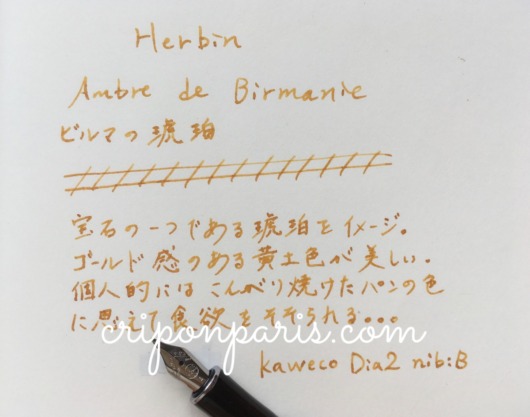 Herbin
Ambre de Birmanie
ビルマの琥珀
宝石の一つである琥珀をイメージ。
ゴールド感のある黄土色が美しい。
個人的にはこんがり焼けたパンの色
に思えて食欲をそそられる...
criponparis.com
kaweco Dia2 nib:B